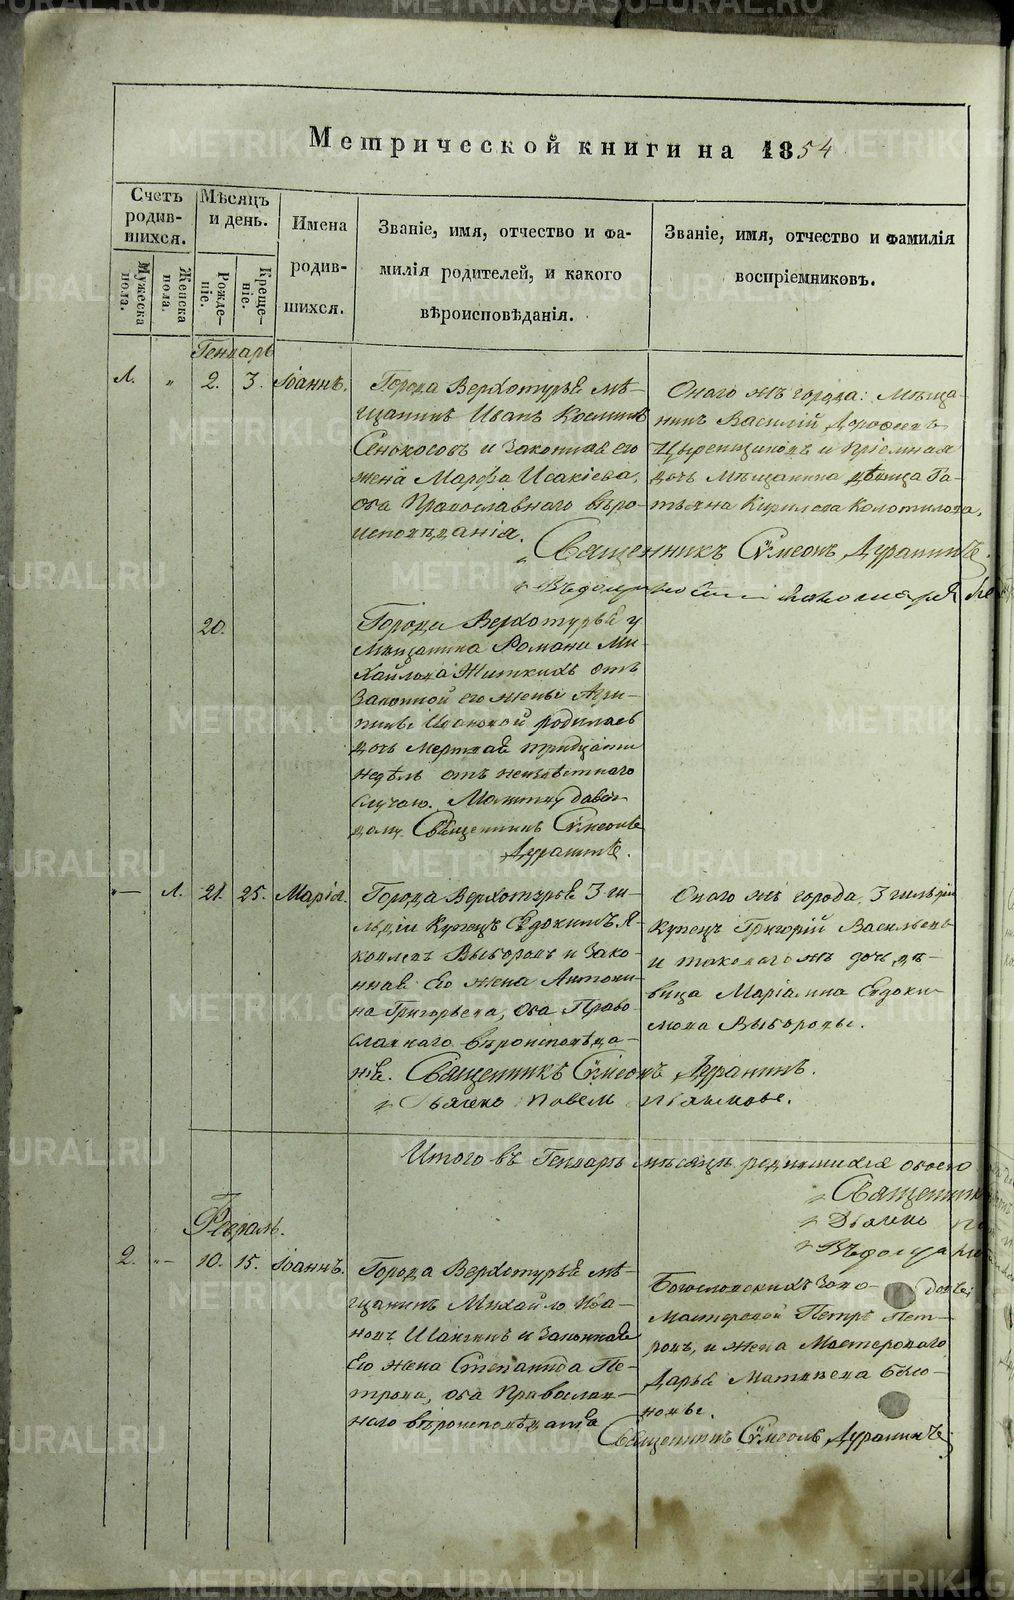 Метрической книги на 1854
Счетъ родив-шихся.
Мужеска пола.
Женска пола.
Мѣсяцъ и день.
Рожде-ніе.
Креще-ніе.
Имена
родив-
шихся.
Званіе, имя, отчество и фа-
милія родителей, и какого
вѣроисповѣданія.
Званіе, имя, отчество и фамилія
воспріемниковъ.
Генварь
1. " 2. 3. Іоаннъ.
Города Верхотурья мѣ-
щанинъ Иванъ Косминъ
Сенокосовъ и законная его
жена Марфа Исакіева,
оба Православнаго вѣро-
исповѣданія.
Оного жъ города: Мѣща-
нинъ Василій Дорофеевъ
и пріемная
дочь мѣщанина дѣвица Та-
тьяна Кирилова Колотилова.
Священникъ Сѵмеонъ Дурапинъ
20.
Города Верхотурья у
мѣщанина Романа Ми-
хайлова Житкихъ отъ
законной его жены Агри-
пины Ивановой родилась
дочь мертвая тридцати
недѣль отъ неизвѣстнаго
случаю. Молитву давалъ
дому Священникъ Сѵмеонъ
Дурапинъ.
"— 1. 21. 25. Марія.
Города Верхотурья 3 ги-
льдіи Купецъ Евдокимъ Я-
ковлевъ Выборовъ и зако-
нная его жена Антони-
на Григорьева, оба Право-
славнаго вѣроисповѣда-
нія.
Оного жъ города 3 гильдіи
Купецъ Григорій Васильевъ
и таковаго жъ дочь дѣ-
вица Маріамна Евдоки-
мова Выборовы.
Священникъ Сѵмеонъ Дурапинъ.
Дьячекъ Павелъ
Итого въ Генварѣ мѣсяцѣ родившихся обоего
Священник
Дьячекъ
Февраль.
2. "— 10. 15. Іоаннъ.
Города Верхотурья мѣ-
щанинъ Михайло Ива-
новъ Шангинъ и законная
его жена Степанида Пе-
трова, оба Православ-
наго вѣроисповѣданія
Богословскихъ
Мастеровой Петръ Пет-
ровъ, и жена Мастероваго
Дарья Матвѣева
Священникъ Сѵмеонъ Дурапинъ
METRIKI.GASO-URAL.RU